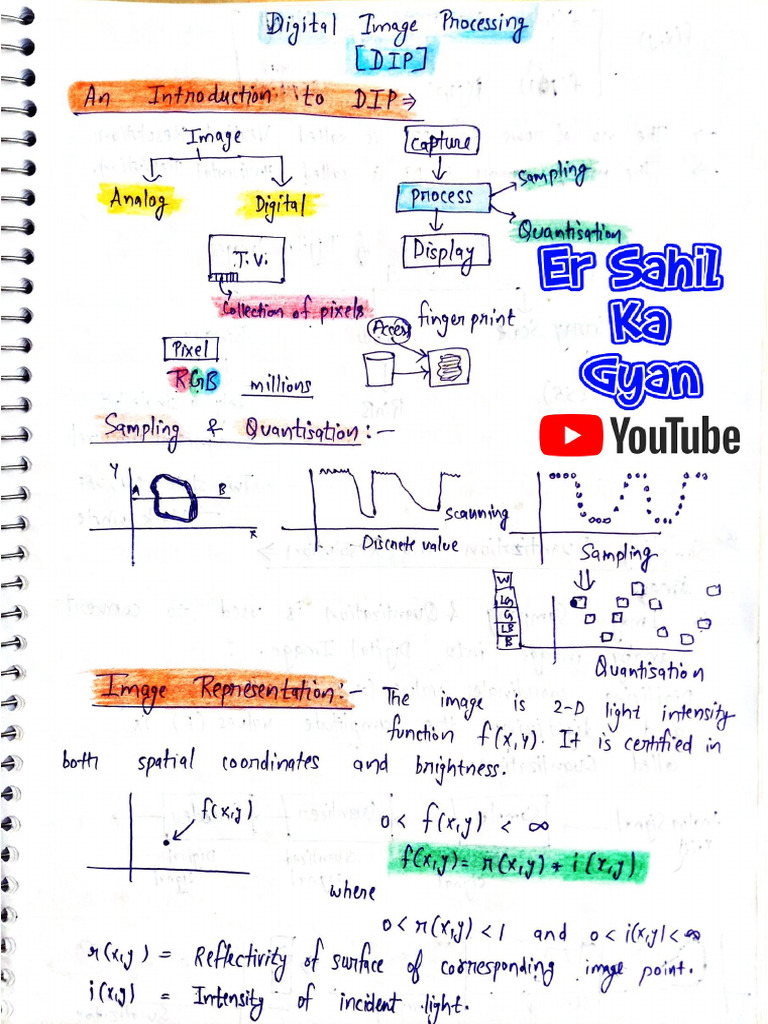 Digital Image Processing
[DIP]
An Introduction to DIP ⇒
Image
Analog
Digital
T.V.
Collection of pixels
Pixel
RGB
millions
Capture
Process
Display
Sampling
Quantisation
Access
finger print
Er Sahil
Ka
Gyan
YouTube
Sampling & Quantisation :-
Y
A
B
x
Discrete value
scanning
Sampling
W
LG
G
LB
B
Quantisation
Image Representation :- The image is 2-D light intensity
function f(x,y). It is certified in
both spatial coordinates and brightness.
f(x,y)
0 < f(x,y) < ∞
f(x,y) = r(x,y) * i(x,y)
where
0 < r(x,y) < 1 and 0 < i(x,y) < ∞
r(x,y) = Reflectivity of surface of corresponding image point.
i(x,y) = Intensity of incident light.